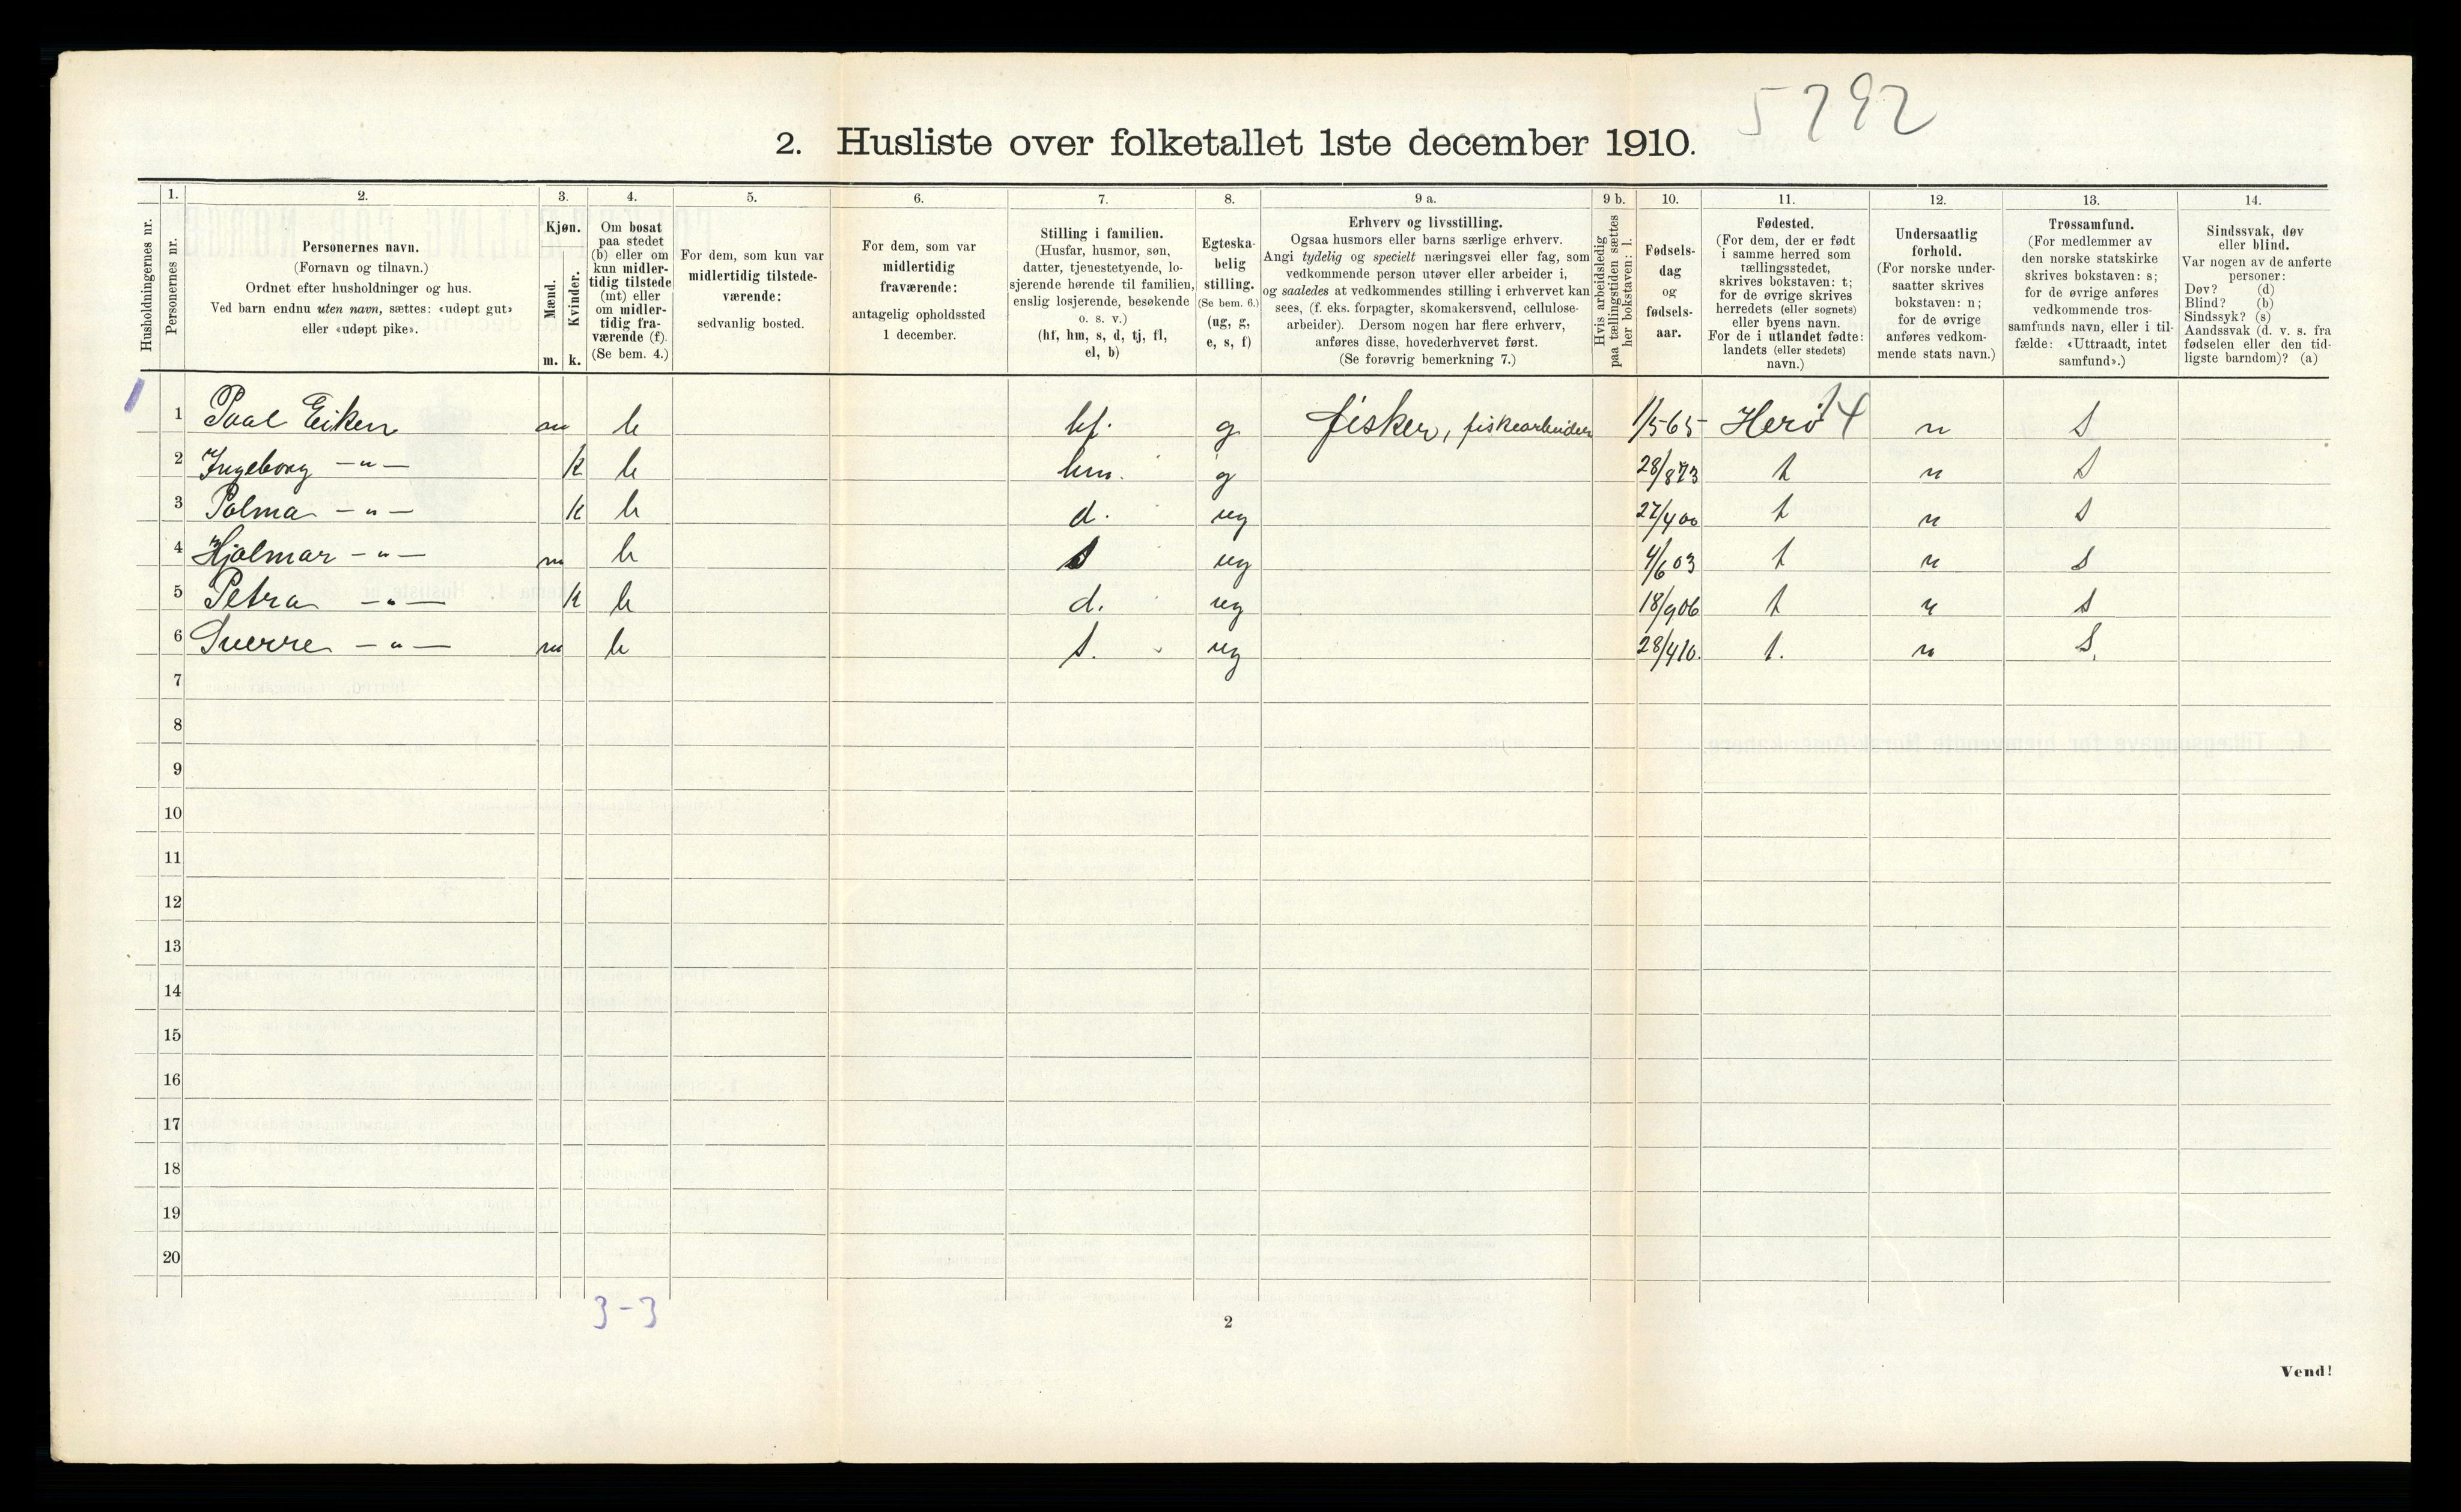 5292
2. Husliste over folketallet 1ste december 1910.
Husholdningernes nr.
1.
Personernes nr.
2.
Personernes navn.
(Fornavn og tilnavn.)
Ordnet efter husholdninger og hus.
Ved barn endnu uten navn, sættes: «udøpt gut»
eller «udøpt pike».
3.
Kjøn.
Mænd.
Kvinder.
m. k.
4.
Om bosat
paa stedet
(b) eller om
kun midler-
tidig tilstede
(mt) eller
om midler-
tidig fra-
værende (f).
(Se bem. 4.)
5.
For dem, som kun var
midlertidig tilstede-
værende:
sedvanlig bosted.
6.
For dem, som var
midlertidig
fraværende:
antagelig opholdssted
1 december.
7.
Stilling i familien.
(Husfar, husmor, søn,
datter, tjenestetyende, lo-
sjerende hørende til familien,
enslig losjerende, besøkende
o. s. v.)
(hf, hm, s, d, tj, fl,
el, b)
8.
Egteska-
belig
stilling.
(Se bem. 6.)
(ug, g,
e, s, f)
9 a.
Erhverv og livsstilling.
Ogsaa husmors eller barns særlige erhverv.
Angi tydelig og specielt næringsvei eller fag, som
vedkommende person utøver eller arbeider i,
og saaledes at vedkommendes stilling i erhvervet kan
sees, (f. eks. forpagter, skomakersvend, cellulose-
arbeider). Dersom nogen har flere erhverv,
anføres disse, hovederhvervet først.
(Se forøvrig bemerkning 7.)
9 b.
Hvis arbeidsledig
paa tællingstiden sættes
her bokstaven: l.
10.
Fødsels-
dag
og
fødsels-
aar.
11.
Fødested.
(For dem, der er født
i samme herred som
tællingsstedet,
skrives bokstaven: t;
for de øvrige skrives
herredets (eller sognets)
eller byens navn.
For de i utlandet fødte:
landets (eller stedets)
navn.)
12.
Undersaatlig
forhold.
(For norske under-
saatter skrives
bokstaven: n;
for de øvrige
anføres vedkom-
mende stats navn.)
13.
Trossamfund.
(For medlemmer av
den norske statskirke
skrives bokstaven: s;
for de øvrige anføres
vedkommende tros-
samfunds navn, eller i til-
fælde: «Uttraadt, intet
samfund».)
14.
Sindssvak, døv
eller blind.
Var nogen av de anførte
personer:
Døv? (d)
Blind? (b)
Sindssyk? (s)
Aandssvak (d. v. s. fra
fødselen eller den tid-
ligste barndom)? (a)
1 Paal Eiken m b hf. g fisker, fiskearbeider 1/5 65 Herø n s
2 Ingeborg -"- k b hm. g 28/8 73 t n s
3 Palma -"- k b d. ug 27/4 00 t n s
4 Hjalmar -"- m b s ug 4/6 03 t n s
5 Petra -"- k b d. ug 18/9 06 t n s
6 Sverre -"- m b s. ug 28/4 10. t. n s.
7
8
9
10
11
12
13
14
15
16
17
18
19
20
3-3
2
Vend!